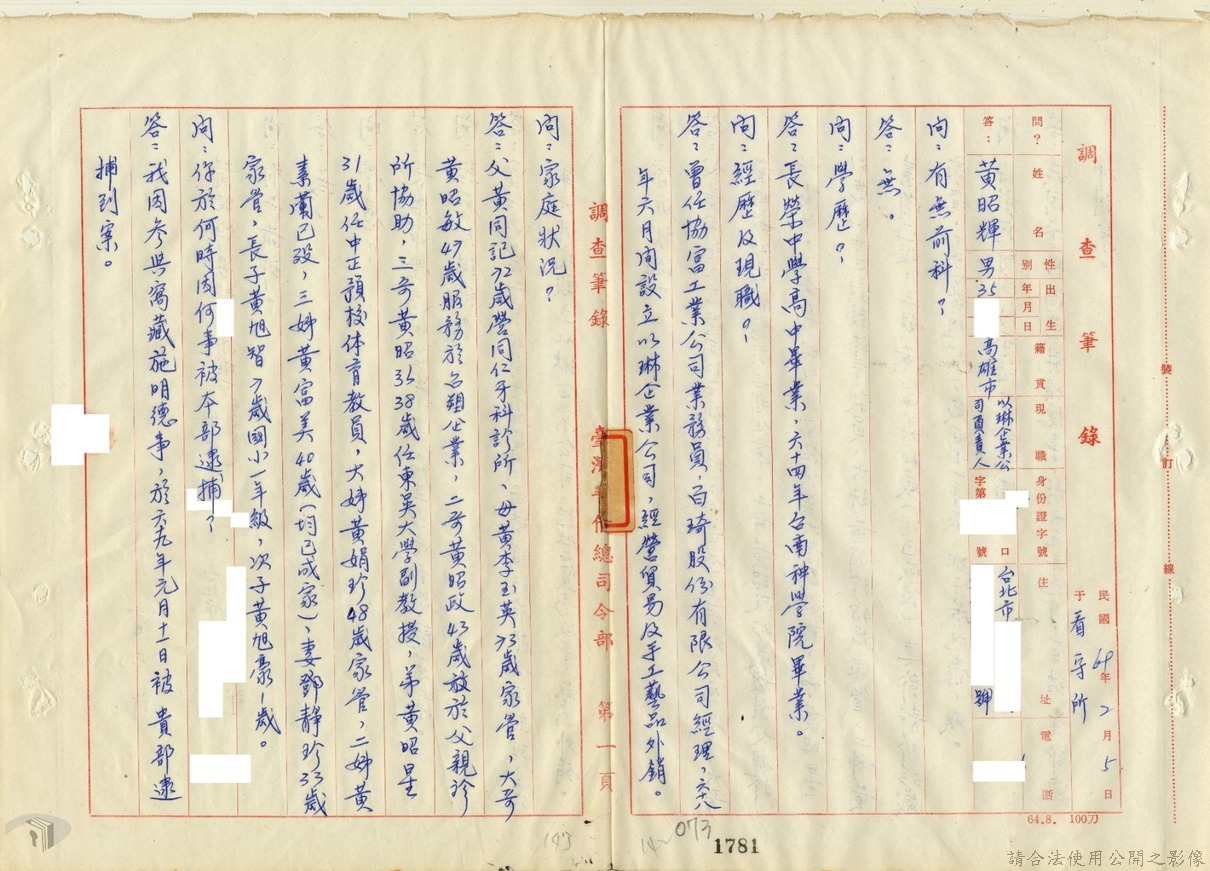 調查筆錄
民國69年2月5日
于看守所
問？ 姓名 性別 出生年月日 籍貫 現職 身份證字號 住址 電話
答： 黃昭輝 男 35 高雄市 以琳企業公司負責人 字第 號 口 台北市 號
問：有無前科？
答：無。
問：學歷？
答：長榮中學高中畢業，六十四年台南神學院畢業。
問：經歷及現職？
答：曾任協富工業公司業務員，白琦股份有限公司經理，六十八
年六月間設立以琳企業公司，經營貿易及手工藝品外銷。
64.8. 100刀
調查筆錄 臺灣 總司令部 第一頁
問：家庭狀況？
答：父黃同記72歲營同仁牙科診所、母黃李玉英73歲家管，大哥
黃昭敏47歲服務於 企業，二哥黃昭政43歲放於父親診
所協助，三哥黃昭 38歲任東吳大學副教授，弟黃昭星
31歲任中正預校体育教員，大姊黃娟珍48歲家管，二姊黃
素蘭已歿，三姊黃富美40歲（均已成家），妻鄧靜珍33歲
家管，長子黃旭智7歲國小一年級，次子黃旭豪1歲。
問：你於何時因何事被本部逮捕？
答：我因參與窩藏施明德事，於六九年元月十一日被貴部逮
捕到案。
裝 訂 線
073
1781
(43
請合法使用公開之影像